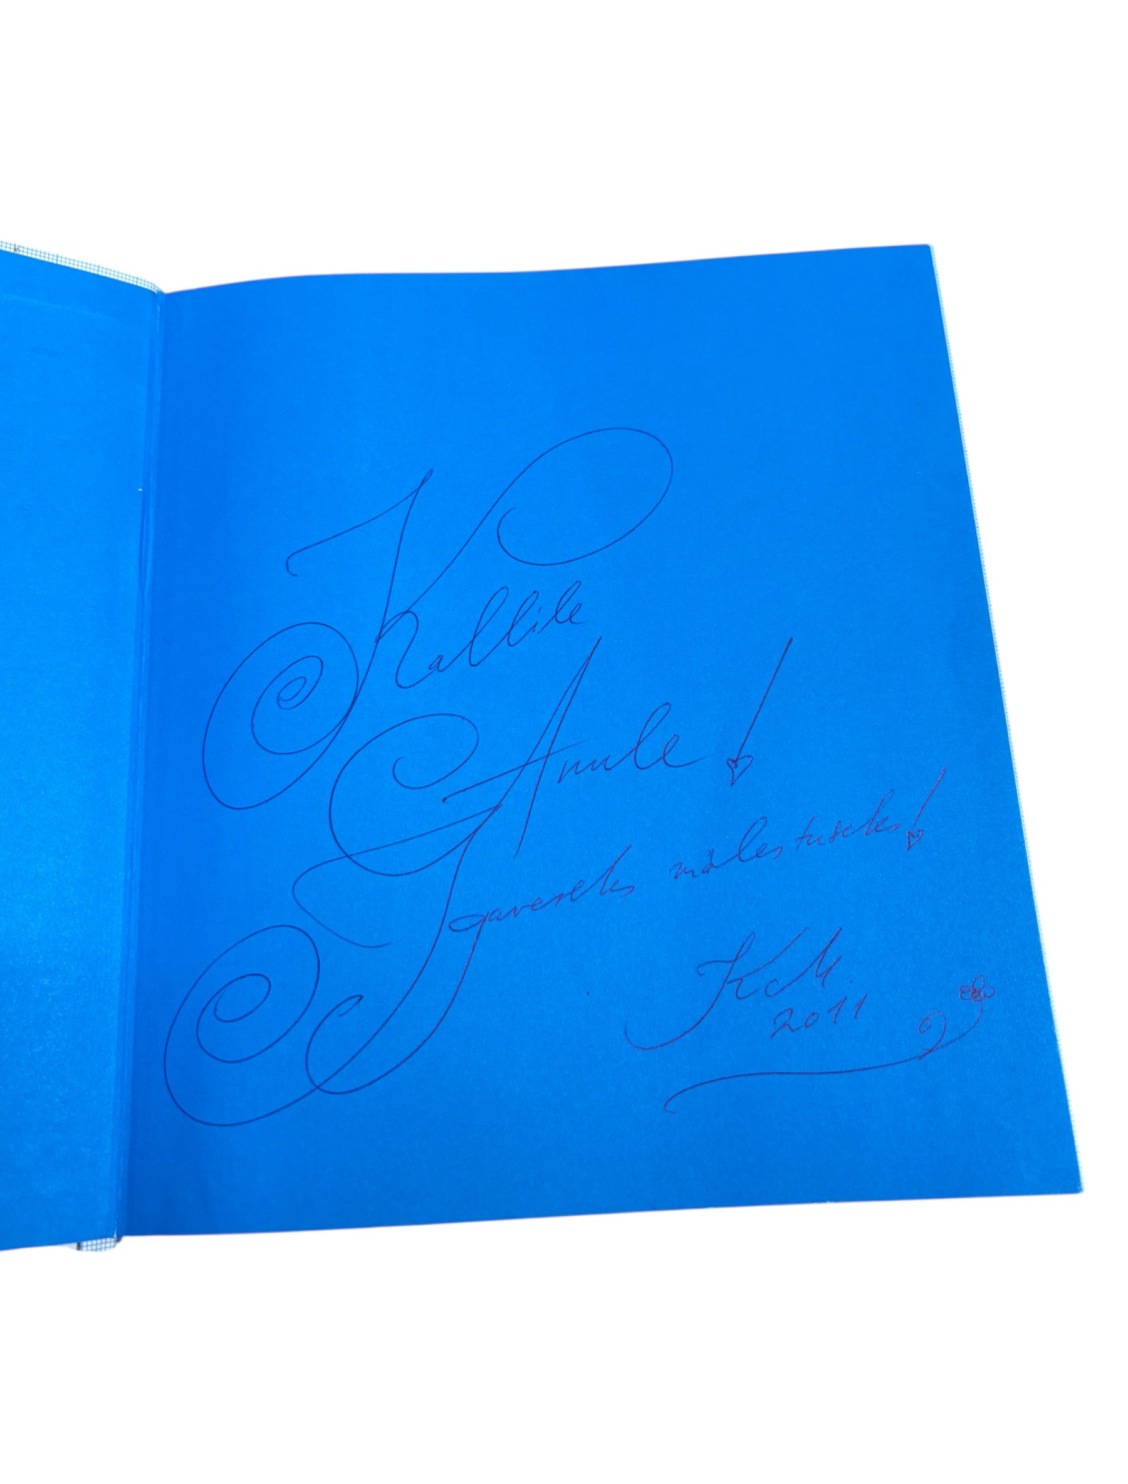 Kallile
Annule!
Igaveseks mälestuseks!
KM
2011